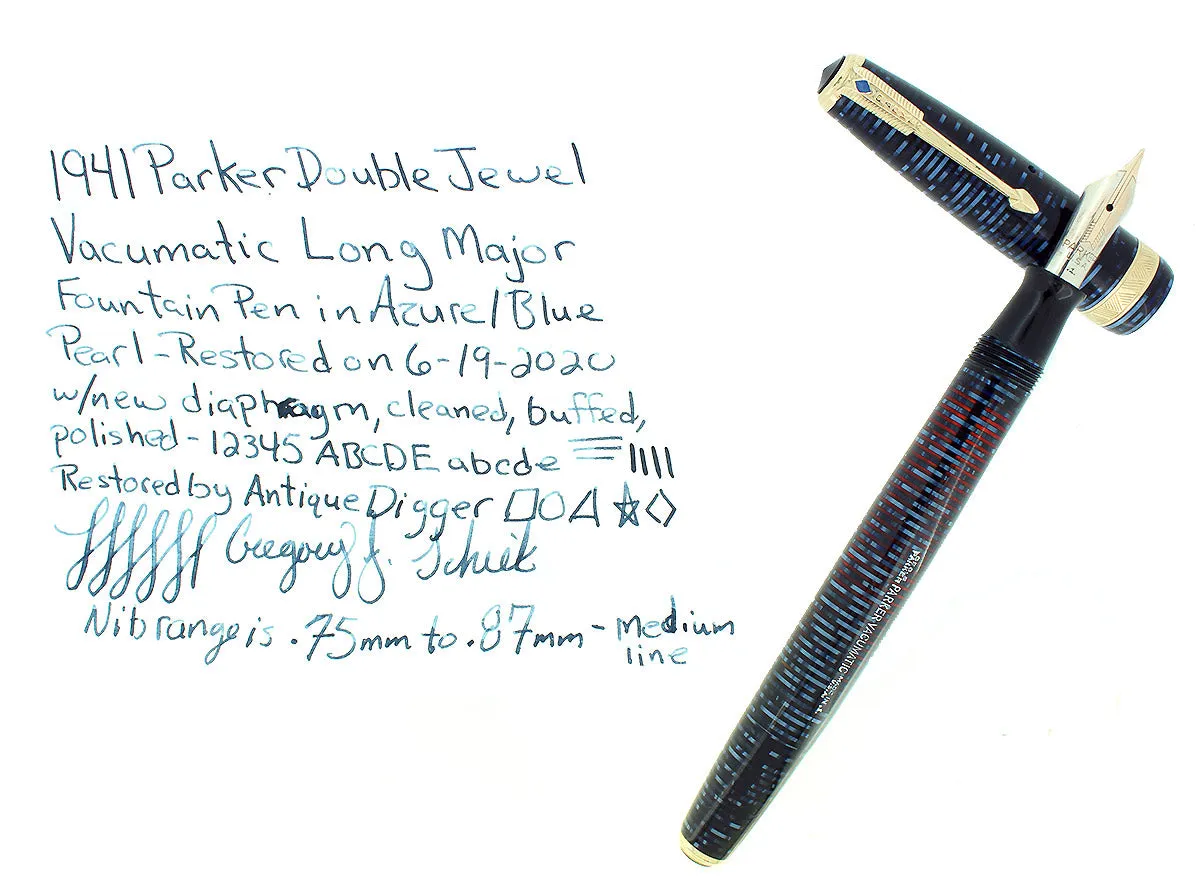 1941 Parker Double Jewel
Vacumatic Long Major
Fountain Pen in Azure/Blue
Pearl-Restored on 6-19-2020
w/new diaphragm, cleaned, buffed,
polished - 12345 ABCDE abcde
Restored by Antique Digger
Gregory J.
Nib range is .75mm to .87mm - medium
line
PARKER
PARKER VACUMATIC
MADE IN U.S.A.